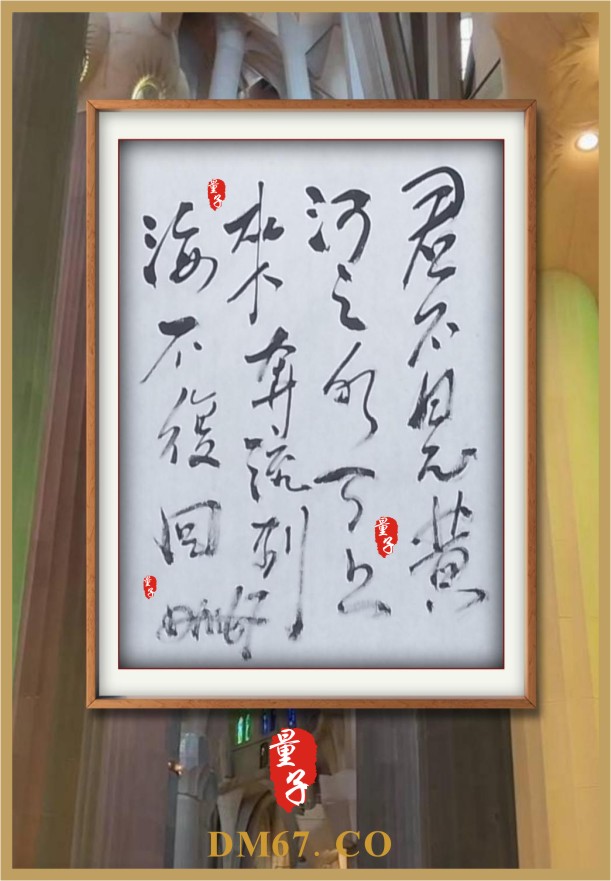 君不見黄
河之水天上
來奔流到
海不復回
量子
量子
量子
量子
DM67. CO